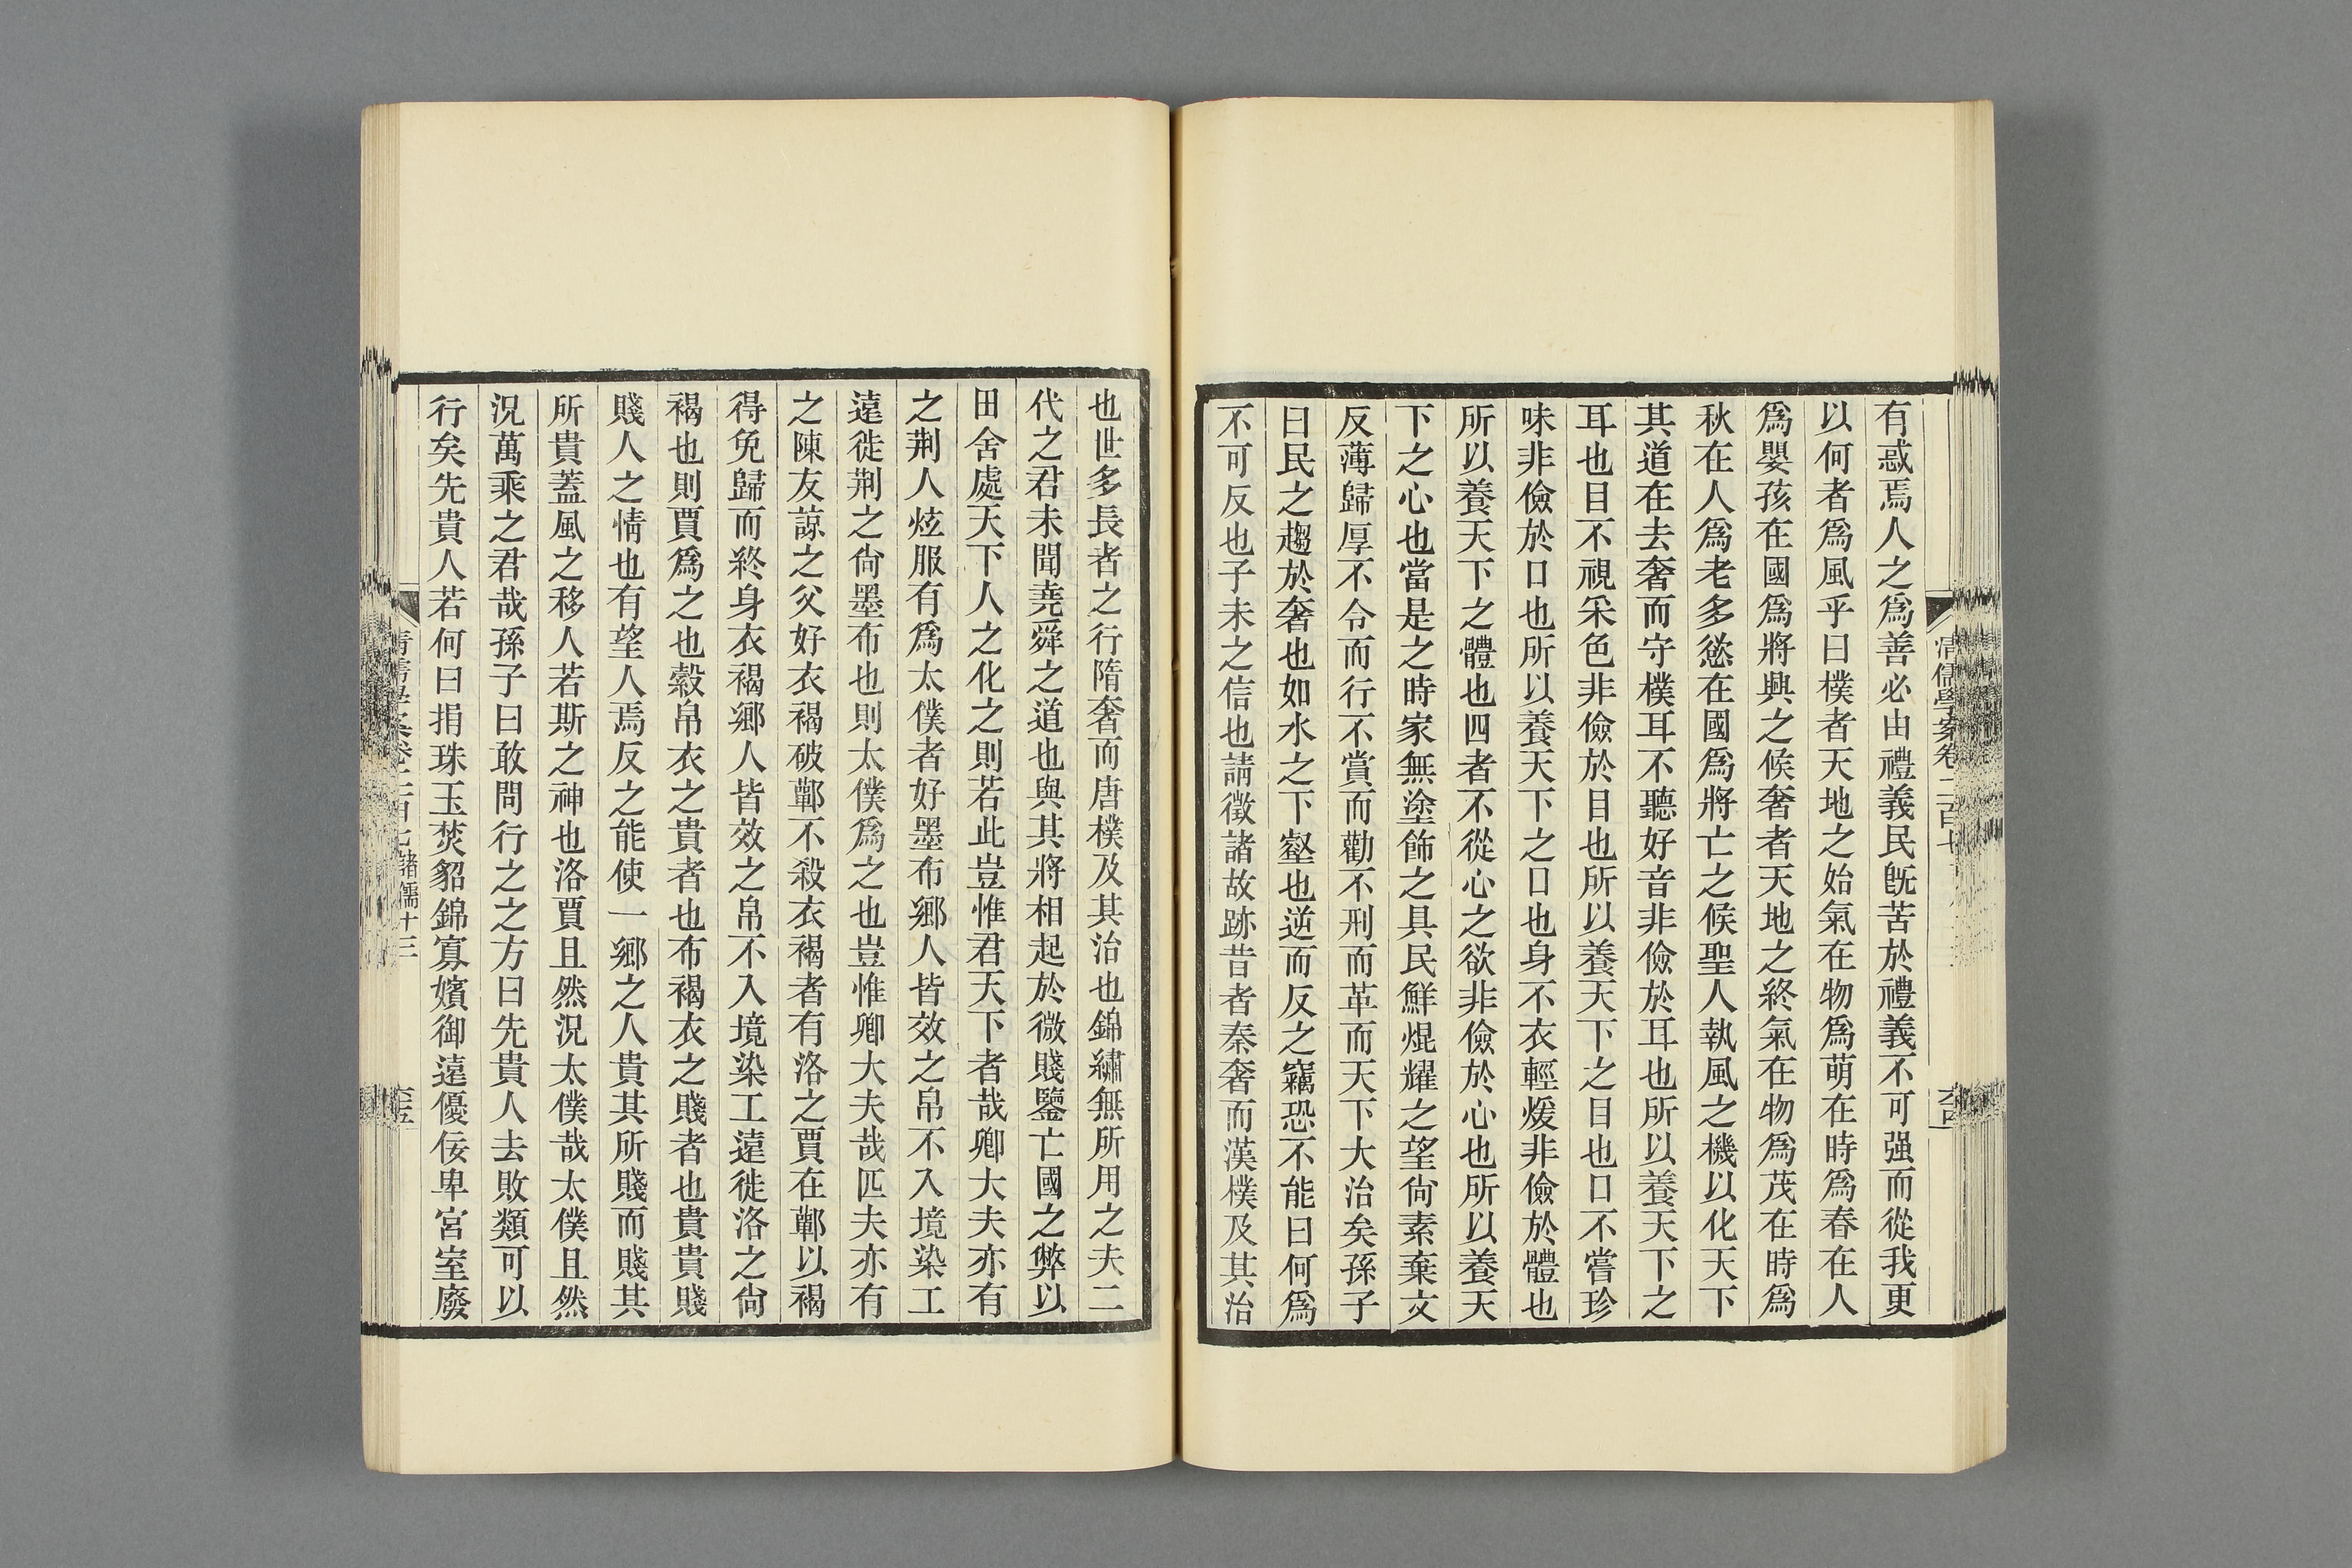 清儒學案卷二百七
有惑焉人之爲善必由禮義民旣苦於禮義不可强而從我更
以何者爲風乎曰樸者天地之始氣在物爲萌在時爲春在人
爲嬰孩在國爲將興之候奢者天地之終氣在物爲茂在時爲
秋在人爲老多慾在國爲將亡之候聖人執風之機以化天下
其道在去奢而守樸耳不聽好音非儉於耳也所以養天下之
耳也目不視采色非儉於目也所以養天下之目也口不嘗珍
味非儉於口也所以養天下之口也身不衣輕煖非儉於體也
所以養天下之體也四者不從心之欲非儉於心也所以養天
下之心也當是之時家無塗飾之具民鮮焜耀之望尙素棄文
反薄歸厚不令而行不賞而勸不刑而革而天下大治矣孫子
曰民之趨於奢也如水之下壑也逆而反之竊恐不能曰何爲
不可反也子未之信也請徵諸故跡昔者秦奢而漢樸及其治
也世多長者之行隋奢而唐樸及其治也錦繡無所用之夫二
代之君未聞堯舜之道也與其將相起於微賤鑒亡國之弊以
田舍處天下人之化之則若此豈惟君天下者哉卿大夫亦有
之荆人炫服有爲太僕者好墨布鄉人皆效之帛不入境染工
遠徙荆之尙墨布也則太僕爲之也豈惟卿大夫哉匹夫亦有
之陳友諒之父好衣褐破鄿不殺衣褐者有洛之賈在鄿以褐
得免歸而終身衣褐鄉人皆效之帛不入境染工遠徙洛之尙
褐也則賈爲之也縠帛衣之貴者也布褐衣之賤者也貴貴賤
賤人之情也有望人焉反之能使一鄉之人貴其所賤而賤其
所貴蓋風之移人若斯之神也洛賈且然況太僕哉太僕且然
況萬乘之君哉孫子曰敢問行之之方曰先貴人去敗類可以
行矣先貴人若何曰捐珠玉焚貂錦寡嬪御遠優佞卑宮室廢
諸儒十三